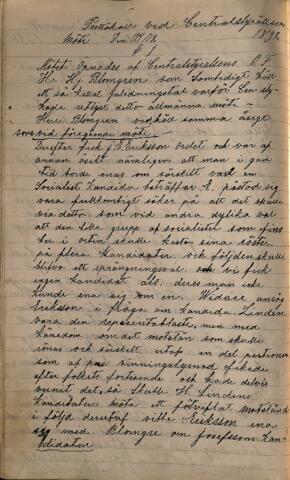 Protokoll vid Centralstyrelsens
Möte Den 17/12 1892
§ 1
Mötet öpnades af Centralstyrelsens O. F.
Hr Hj Blomgren som samtidigt höll
ett så kallat inledningstal varför Cen sty-
relse utlyst detta allmänna möte –
Herr Blomgren vidhöll samma åsigt
som vid föregående möte.
Derefter fick J. E. Eriksson ordet och var af
annan åsikt nämligen att man i god
tid borde enas om särskilt vald en
Socialist Kandidat beträffar E. påstod sig
vara fullkomligt säker på att det skulle
via detta som vid andra dylika val
att den lilla grupp af socialister som efins
her i orten skulle kasta sina röster
på flera kandidater och följden skulle
blifva et sprängningsval och vi fick
ingen kandidat als deras man icke
kunde ena sig om en. Widare ansåg
Eriksson i fråga om kandida. Linden
vara den representablaste, men med
känedom om det motstån som skulle
rönas och särskilt utaf en del personer
som af pur vinningslystnad efikade
efter folkets fortroende och hade delvis
vunit det så skulle H. Lindens
kandidatur möta ett förtviflat motstånd
i följd deraf ville Eriksson ena
sig med Blomgre om Josefssons Kan-
didatur